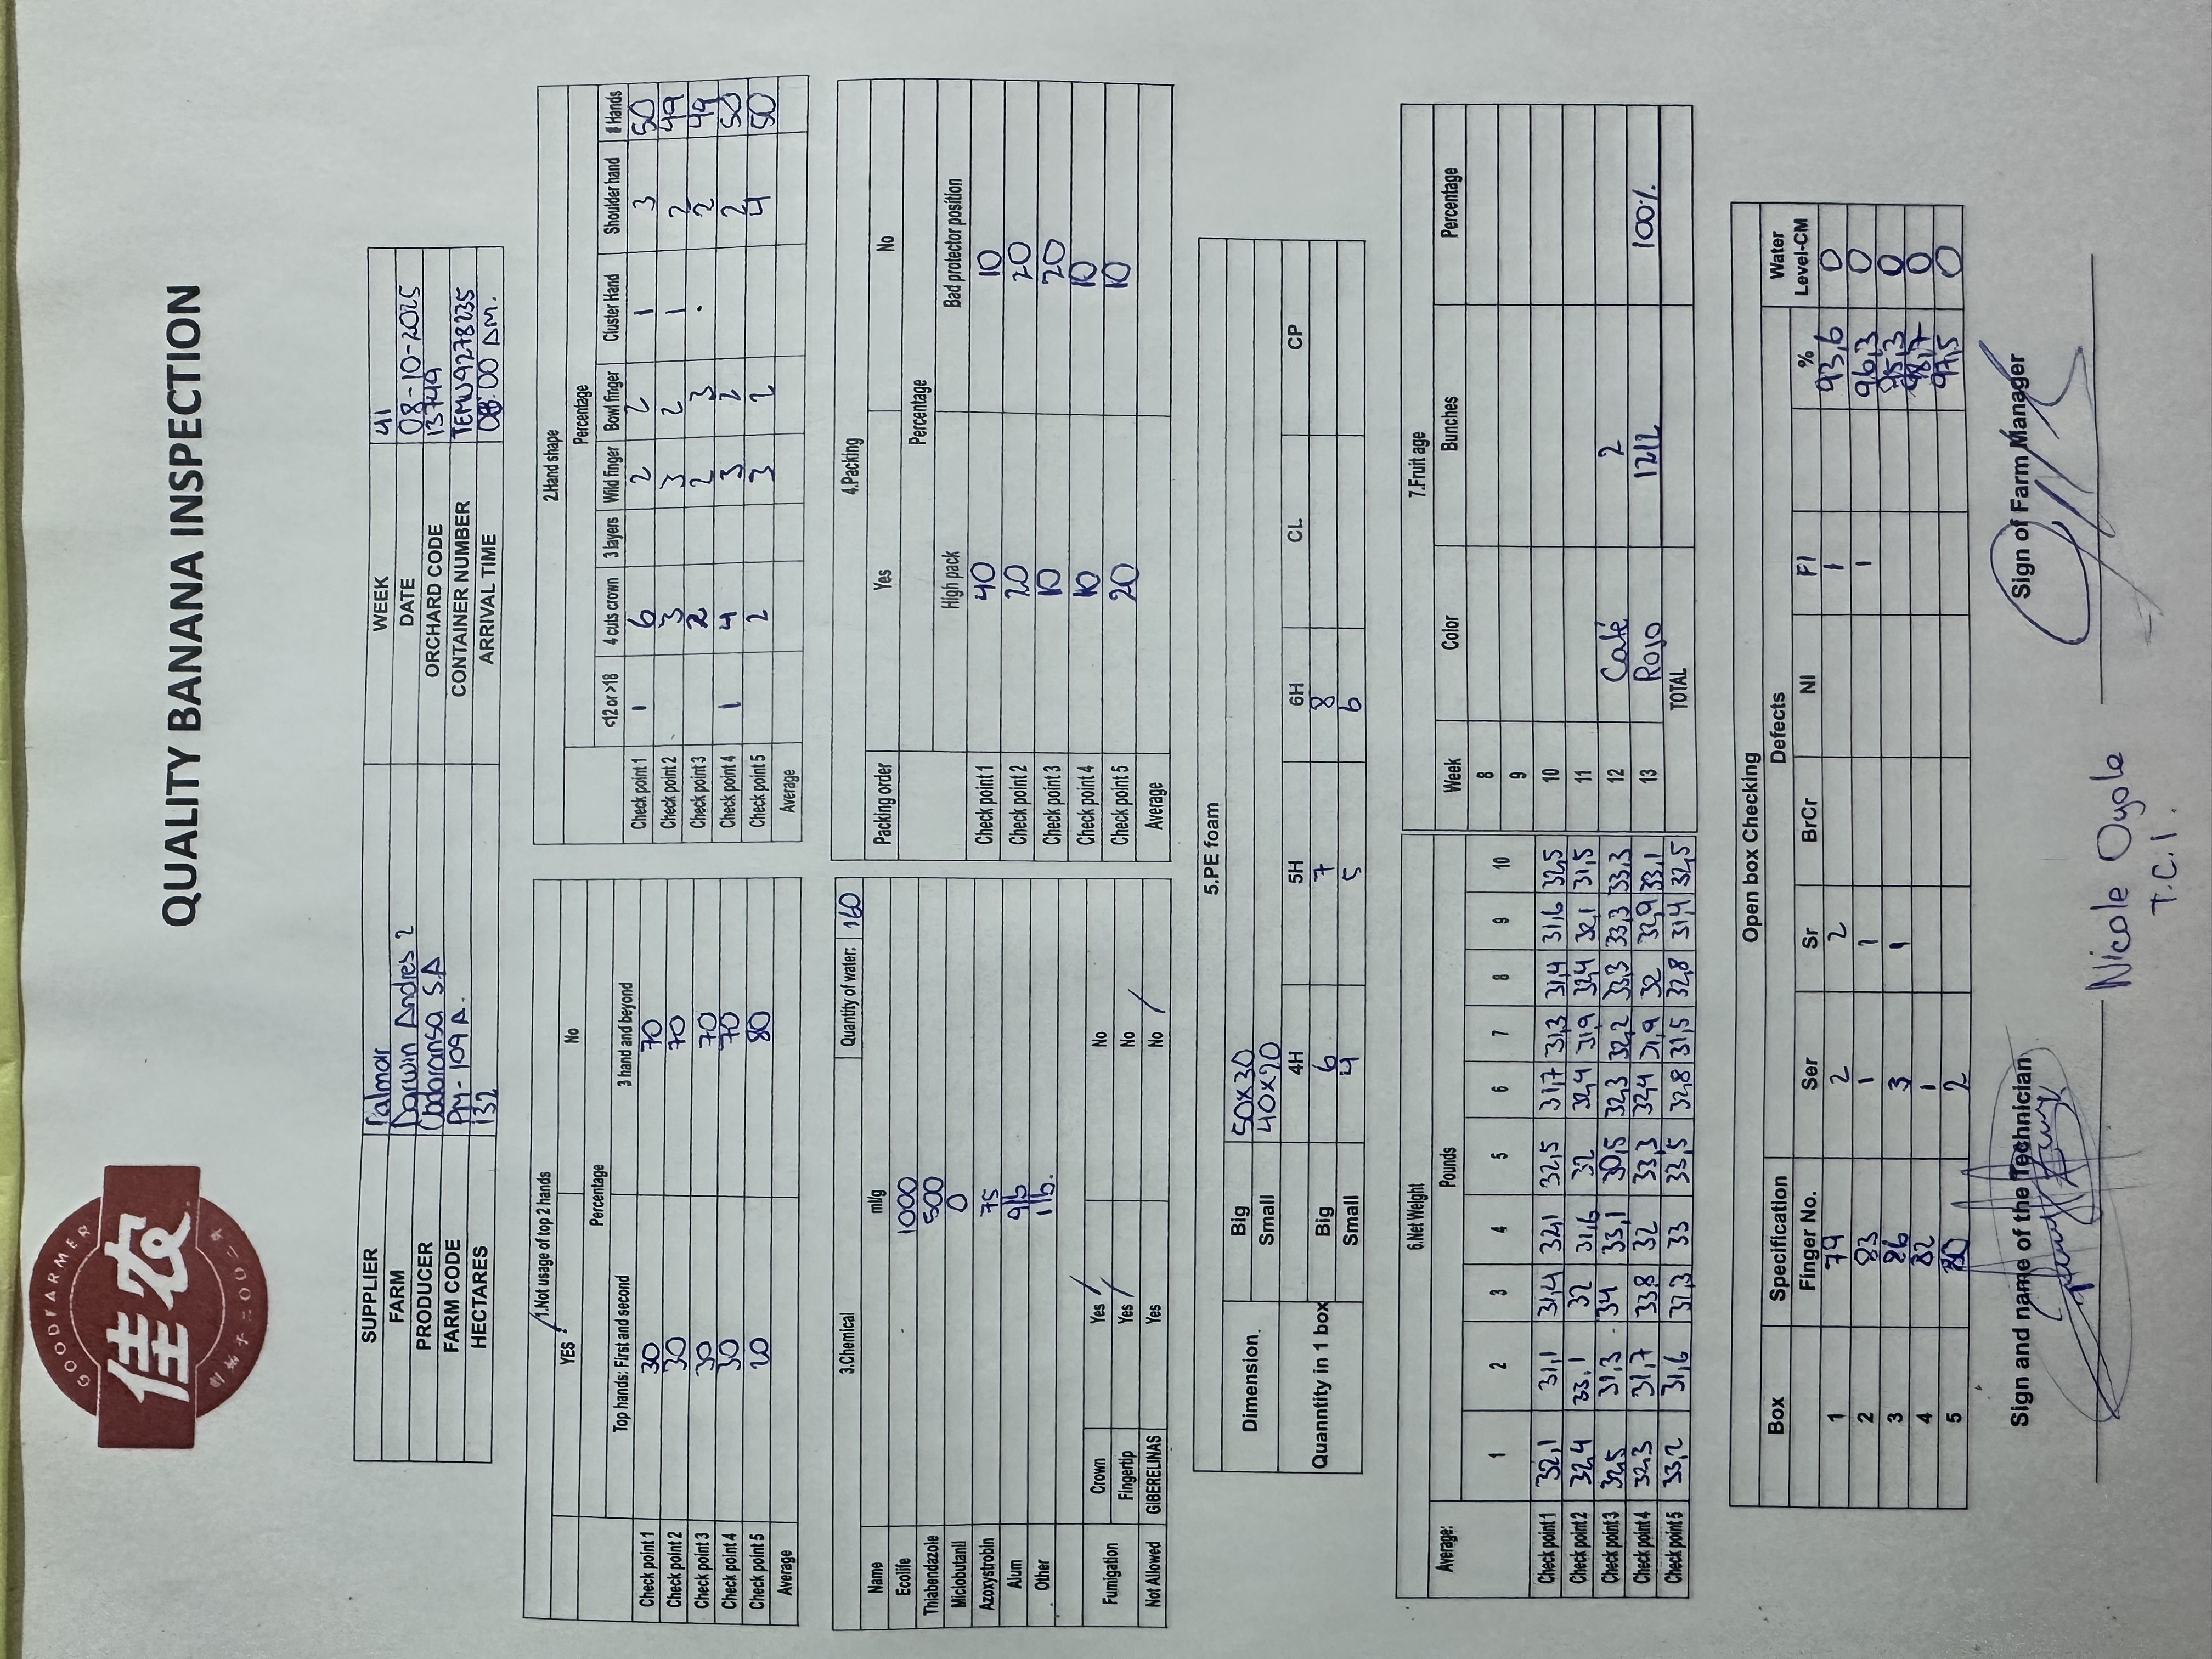 GOODFARMER
佳农
创始于二〇〇二年
QUALITY BANANA INSPECTION
SUPPLIER Palmar WEEK 41
FARM Darwin Andres 2 DATE 08-10-2025
PRODUCER S.A ORCHARD CODE 13749
FARM CODE PM-109 A. CONTAINER NUMBER TEMU9278235
HECTARES 132 ARRIVAL TIME 08:00 AM.
1.Not usage of top 2 hands
YES No
Percentage
Top hands: First and second 3 hand and beyond
Check point 1 30 70
Check point 2 30 70
Check point 3 30 70
Check point 4 30 70
Check point 5 20 80
Average
2.Hand shape
Percentage
<12 or >18 4 cuts crown 3 layers Wild finger Bowl finger Cluster Hand Shoulder hand # Hands
Check point 1 1 6 2 2 1 3 50
Check point 2 3 3 2 1 2 49
Check point 3 2 2 3 2 49
Check point 4 1 4 3 2 2 50
Check point 5 2 3 2 4 50
Average
3.Chemical Quantity of water: 160
Name ml/g
Ecolife 1000
Thiabendazole 500
Miclobutanil 0
Azoxystrobin 75
Alum 9lb
Other 1lb.
Fumigation Crown Yes / No
Fingertip Yes / No
Not Allowed GIBERELINAS Yes No /
4.Packing
Packing order Yes No
Percentage
High pack Bad protector position
Check point 1 40 10
Check point 2 20 20
Check point 3 10 20
Check point 4 10 10
Check point 5 20 10
Average
5.PE foam
Dimension. Big 50x30
Small 40x20
Quanntity in 1 box 4H 5H 6H CL CP
Big 6 7 8
Small 4 5 6
6.Net Weight
Average: Pounds
1 2 3 4 5 6 7 8 9 10
Check point 1 32,1 31,1 31,4 32,1 32,5 31,7 31,3 31,4 31,6 32,5
Check point 2 32,4 33,1 32 31,6 32 32,4 31,9 32,4 32,1 31,5
Check point 3 32,5 31,3 34 33,1 30,5 32,3 32,2 33,3 33,3 33,3
Check point 4 32,3 31,7 33,8 32 33,3 32,4 31,9 32 32,9 33,1
Check point 5 33,2 31,6 32,3 33 33,5 32,8 31,5 32,8 31,4 32,5
7.Fruit age
Week Color Bunches Percentage
8
9
10
11
12 Café 2
13 Rojo 1212 100%
TOTAL
Open box Checking
Box Specification Defects Water
Finger No. Ser Sr BrCr NI FI % Level-CM
1 79 2 2 1 93,6 0
2 83 1 1 1 96,3 0
3 86 3 1 95,3 0
4 82 1 98,7 0
5 80 2 97,5 0
Sign and name of the Technician Sign of Farm Manager
Nicole Oyola
T.C.I.